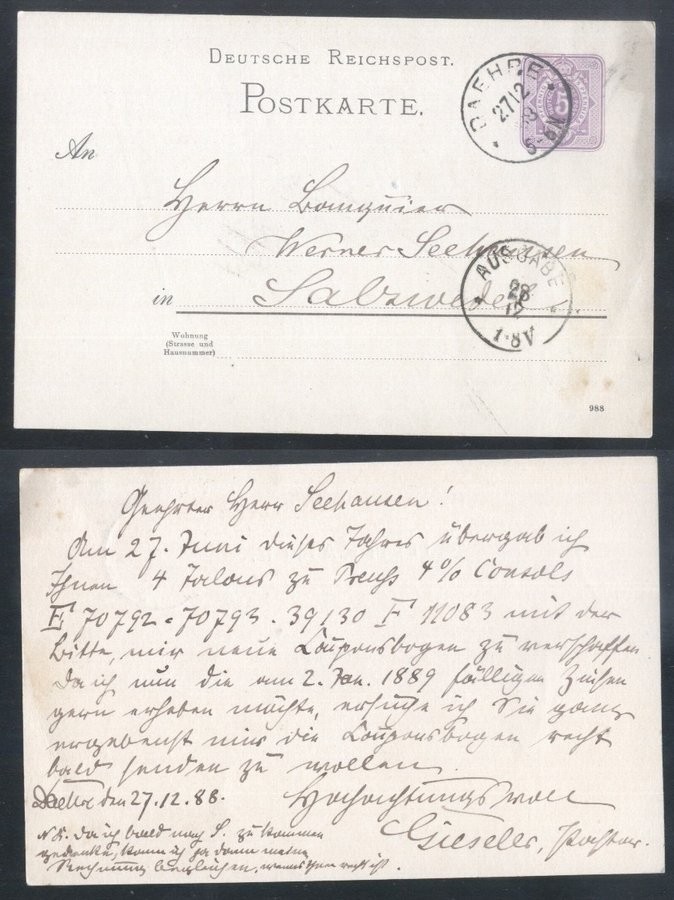 DEUTSCHE REICHSPOST.
POSTKARTE.
DAEHRE
27/12
5-6N
5
An
Herrn Banquier
Werner Seehausen
in Salzwedel
AUSGABE
28
12
7-8V
Wohnung
(Strasse und
Hausnummer)
988
Geehrter Herr Seehausen!
Am 27. Juni dieses Jahres übergab ich
Ihnen 4 Talons zu Preuß 4% Consols
E 70792 - 70793 . 39130 F 11083 mit der
Bitte, mir neue Couponsbogen zu verschaffen
Da ich nun die am 2. Jan. 1889 fälligen Zinsen
gern erheben möchte, ersuche ich Sie ganz
ergebenst mir die Couponsbogen recht
bald senden zu wollen.
den 27.12.88. Hochachtungsvoll
Gieseler, Pastor.
N.S. Da ich bald nach S. zu kommen
gedenke, kann ich ja dann meine
Rechnung begleichen, wenns Ihnen recht ist.